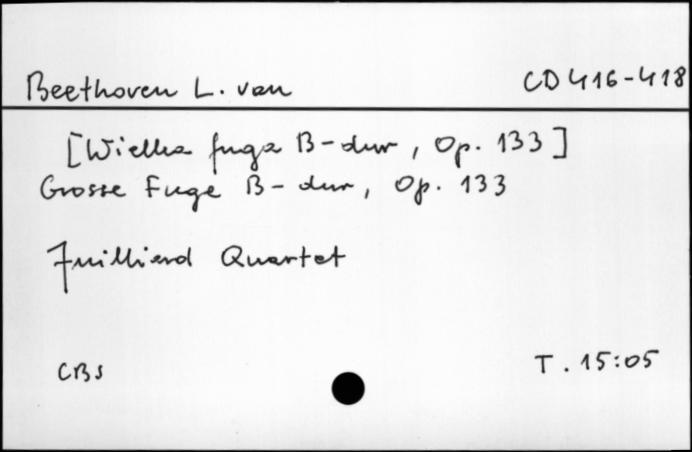 Beethoven L. van CD 416-418
[Wielka fuga B-dur, Op. 133]
Grosse Fuge B-dur, Op. 133
Juilliard Quartet
CBS T. 15:05